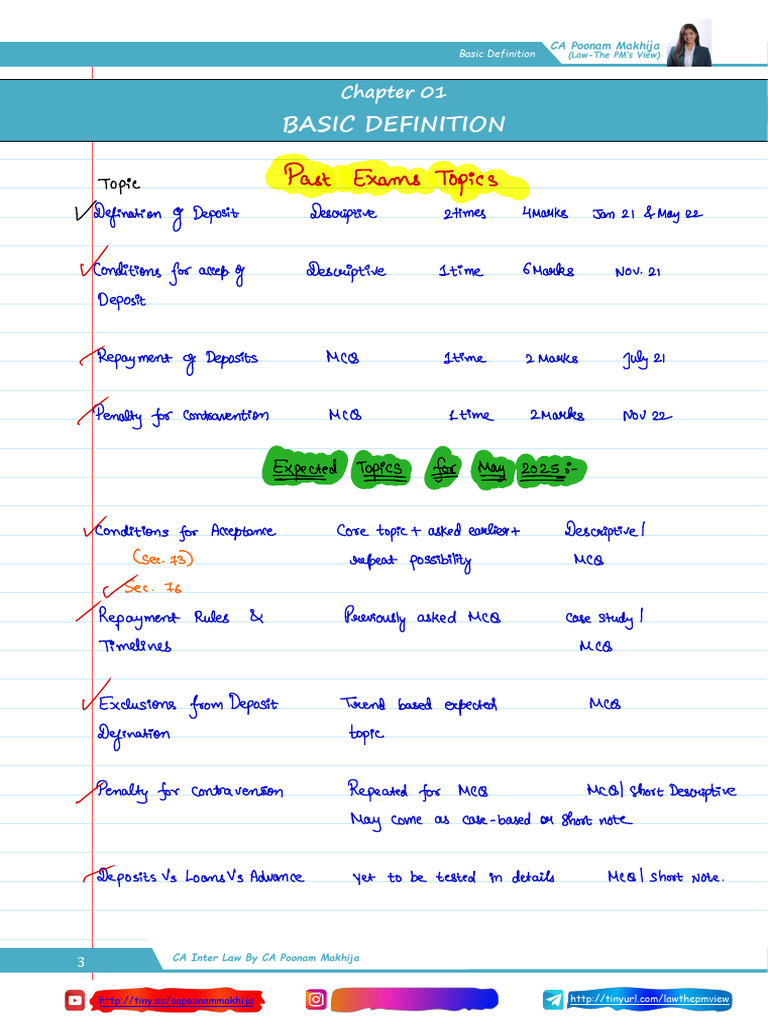 CA Poonam Makhija
Basic Definition
(Law-The PM's View)
Chapter 01
BASIC DEFINITION
Past Exams Topics
Topic
Defination of Deposit Descriptive 2 times 4 Marks Jan 21 & May 22
Conditions for accep of Descriptive 1 time 6 Marks Nov. 21
Deposit
Repayment of Deposits MCQ 1 time 2 Marks July 21
Penalty for contravention MCQ 1 time 2 Marks Nov 22
Expected Topics for May 2025:-
Conditions for Acceptance Core topic + asked earlier + Descriptive/
(Sec. 73) repeat possibility MCQ
Sec. 76
Repayment Rules & Previously asked MCQ case study/
Timelines MCQ
Exclusions from Deposit Trend based expected MCQ
Defination topic
Penalty for contravension Repeated for MCQ MCQ/ Short Descriptive
May come as case-based or short note
Deposits Vs Loans Vs Advance yet to be tested in details MCQ/ Short Note.
3
CA Inter Law By CA Poonam Makhija
http://tiny.cc/capoonammakhija
http://tinyurl.com/lawthepmview